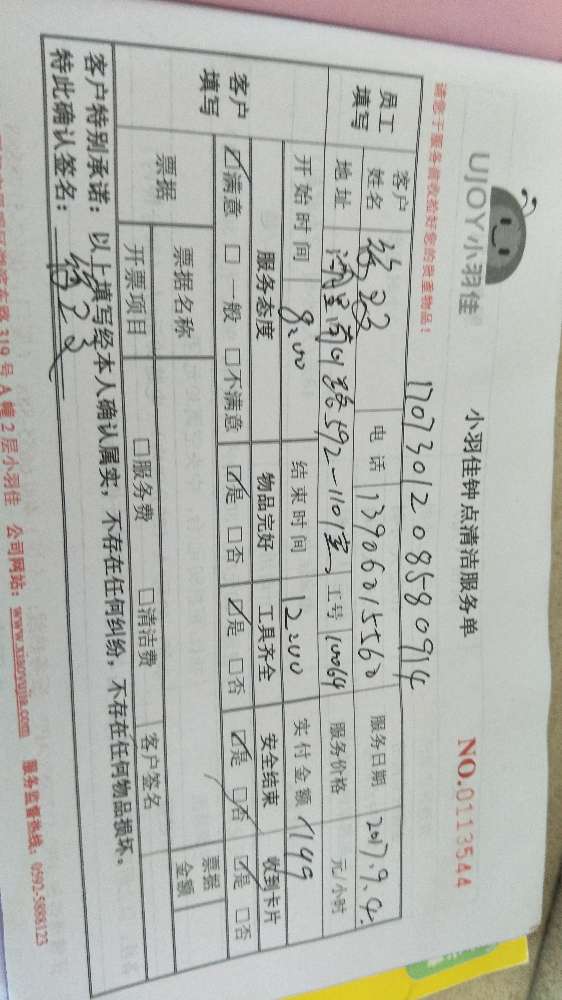 UJOY小羽佳
小羽佳钟点清洁服务单
NO.0113544
请您于服务前收拾好您的贵重物品!
1707301208580914
员工填写
客户姓名
电话 13906015560
服务日期 2017.9.4.
地址 592-1101室
工号 10064
服务价格 元/小时
开始时间 8:00
结束时间 12:00
实付金额 149
客户填写
服务态度 物品完好 工具齐全 安全结束 收到卡片
☑满意 □一般 □不满意 ☑是 □否 ☑是 □否 ☑是 □否 ☑是 □否
票据
票据名称
票据金额
开票项目 □服务费 □清洁费 客户签名
客户特别承诺:以上填写经本人确认属实,不存在任何纠纷,不存在任何物品损坏。
特此确认签名:
319号A幢2层小羽佳 公司网站:www.xiaoyujia.com 服务监督热线:0592-5888123